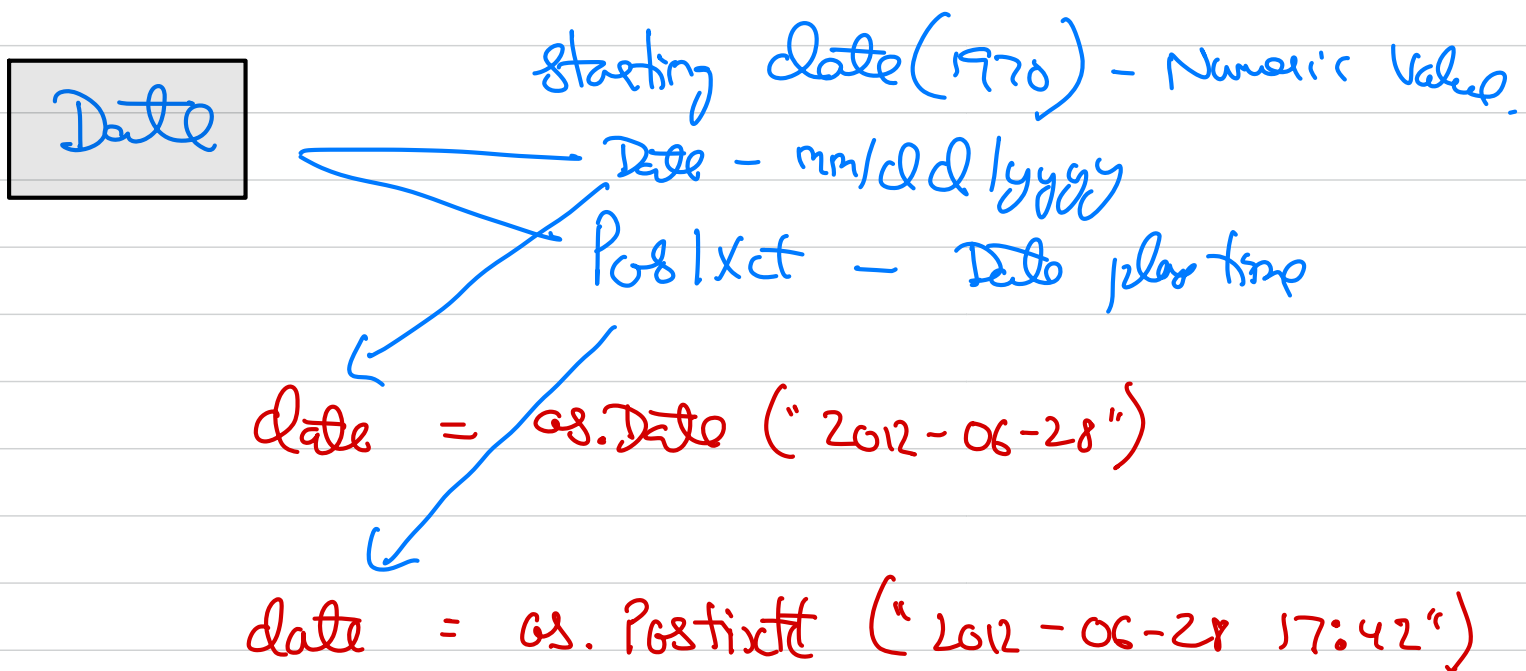 starting date (1970) - Numeric Value.
Date
Date - mm/dd/yyyy
PosIXct - Date plus time
date = as.Date ("2012-06-28")
date = as.Postixct ("2012-06-28 17:42")